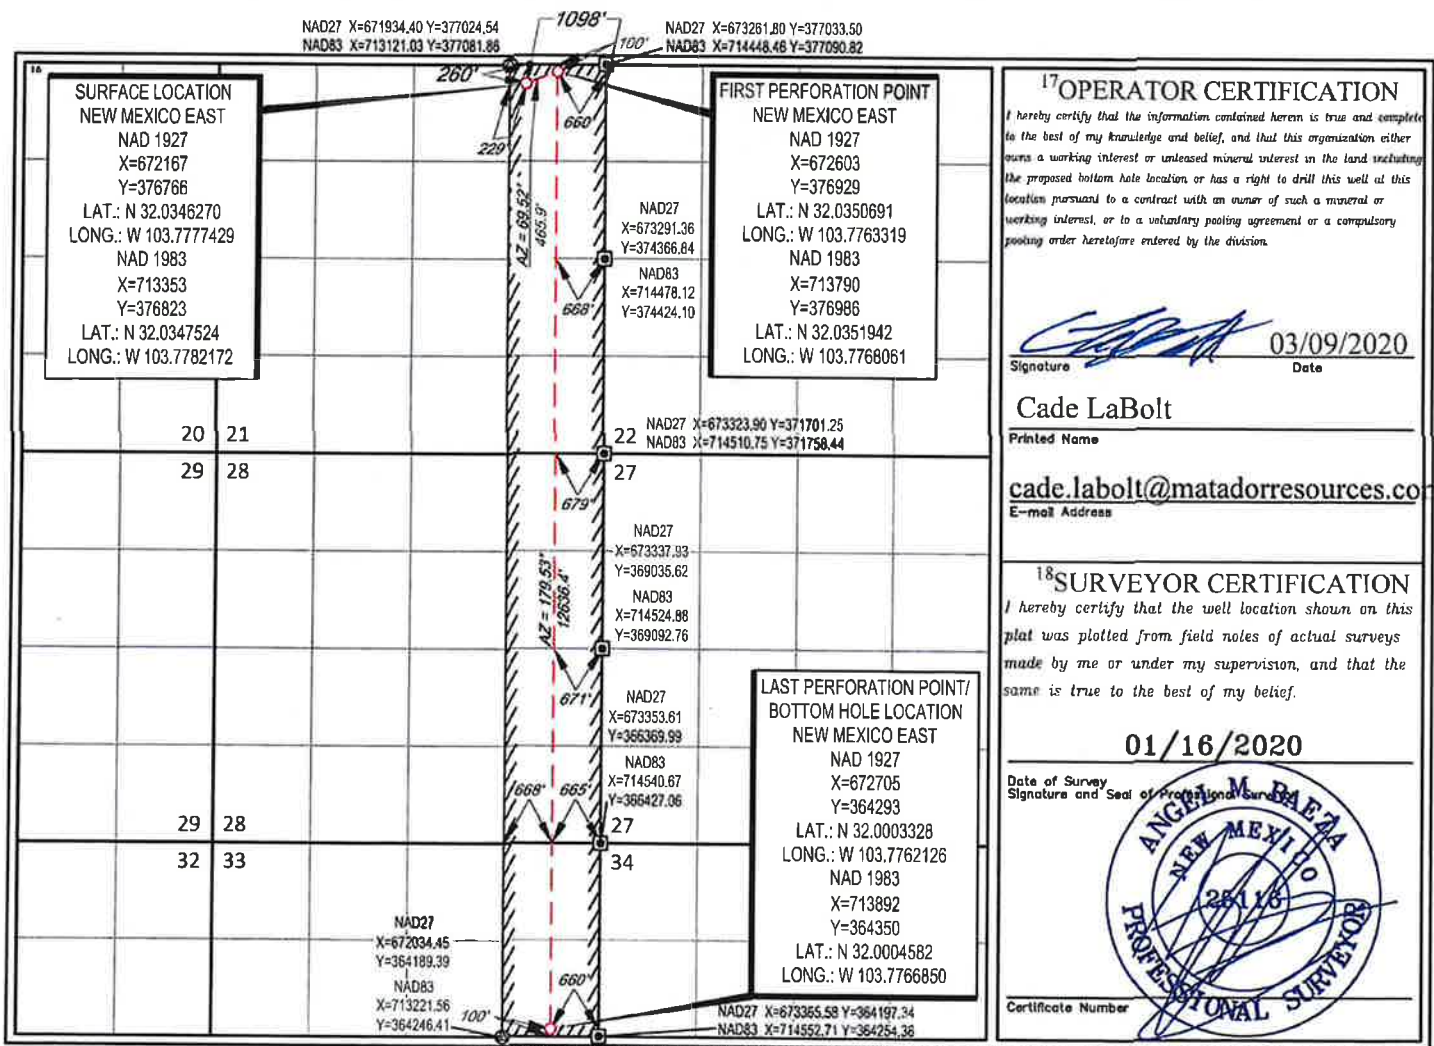 NAD27 X=671934.40 Y=377024.54
NAD83 X=713121.03 Y=377081.86
1098'
NAD27 X=673261.80 Y=377033.50
NAD83 X=714448.46 Y=377090.82
100'
260'
16
SURFACE LOCATION
NEW MEXICO EAST
NAD 1927
X=672167
Y=376766
LAT.: N 32.0346270
LONG.: W 103.7777429
NAD 1983
X=713353
Y=376823
LAT.: N 32.0347524
LONG.: W 103.7782172
660'
229'
AZ = 69.52°
465.9'
FIRST PERFORATION POINT
NEW MEXICO EAST
NAD 1927
X=672603
Y=376929
LAT.: N 32.0350691
LONG.: W 103.7763319
NAD 1983
X=713790
Y=376986
LAT.: N 32.0351942
LONG.: W 103.7768061
NAD27
X=673291.36
Y=374366.84
NAD83
X=714478.12
Y=374424.10
668'
20 21
29 28
22
27
NAD27 X=673323.90 Y=371701.25
NAD83 X=714510.75 Y=371758.44
679'
NAD27
X=673337.93
Y=369035.62
NAD83
X=714524.88
Y=369092.76
AZ = 179.53°
12636.4'
671'
NAD27
X=673353.61
Y=366369.99
NAD83
X=714540.67
Y=366427.06
668' 665'
29 28
32 33
27
34
LAST PERFORATION POINT/
BOTTOM HOLE LOCATION
NEW MEXICO EAST
NAD 1927
X=672705
Y=364293
LAT.: N 32.0003328
LONG.: W 103.7762126
NAD 1983
X=713892
Y=364350
LAT.: N 32.0004582
LONG.: W 103.7766850
NAD27
X=672034.45
Y=364189.39
NAD83
X=713221.56
Y=364246.41
100'
660'
NAD27 X=673365.58 Y=364197.34
NAD83 X=714552.71 Y=364254.36
17 OPERATOR CERTIFICATION
I hereby certify that the information contained herein is true and complete
to the best of my knowledge and belief, and that this organization either
owns a working interest or unleased mineral interest in the land including
the proposed bottom hole location or has a right to drill this well at this
location pursuant to a contract with an owner of such a mineral or
working interest, or to a voluntary pooling agreement or a compulsory
pooling order heretofore entered by the division.
03/09/2020
Signature Date
Cade LaBolt
Printed Name
cade.labolt@matadorresources.co
E-mail Address
18 SURVEYOR CERTIFICATION
I hereby certify that the well location shown on this
plat was plotted from field notes of actual surveys
made by me or under my supervision, and that the
same is true to the best of my belief.
01/16/2020
Date of Survey
Signature and Seal of Professional Surveyor
ANGEL M. BAEZA
NEW MEXICO
25116
PROFESSIONAL SURVEYOR
Certificate Number